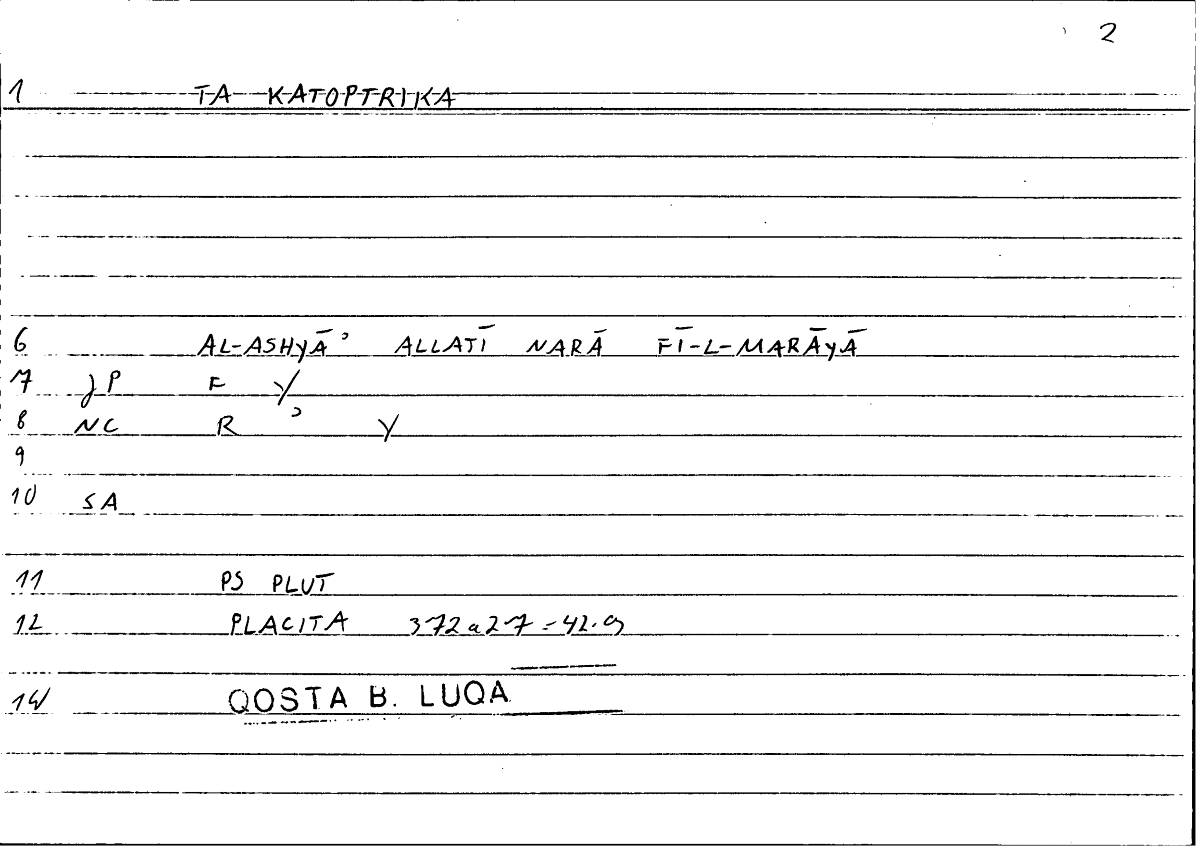 2
1 TA KATOPTRIKA
6 AL-ASHYĀʾ ALLATĪ NARĀ FĪ-L-MARĀYĀ
7 JP F Y
8 NC R ʾ Y
9
10 SA
11 PS PLUT
12 PLACITA 372a27=42.9
14 QOSTA B. LUQA